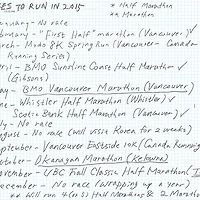 ES TO RUN IN 2015 * Half Marathon
* * Marathon
nuary - No race
bruary - "First Half" marathon (Vancouver) ✓
rch - Modo 8K Spring Run (Vancouver - Canada
Running Series)
ril - BMO Sunshine Coast Half Marathon ✓
(Gibsons)
ay - BMO Vancouver Marathon (Vancouver)
ne - Whistler Half Marathon (Whistler) ✓
Scotia Bank Half Marathon (Vancouver) ✓
ly - No race
ugust - No race (will visit Korea for 2 weeks)
eptember - Vancouver Eastside 10K (Canada Running
ctober - Okanagan Marathon (Kelowna)
ovember - UBC Fall Classic Half Marathon
ecember - No race (wrapping up a year)
** Will run 4 (or 5) Half Marathons & 2 Marath